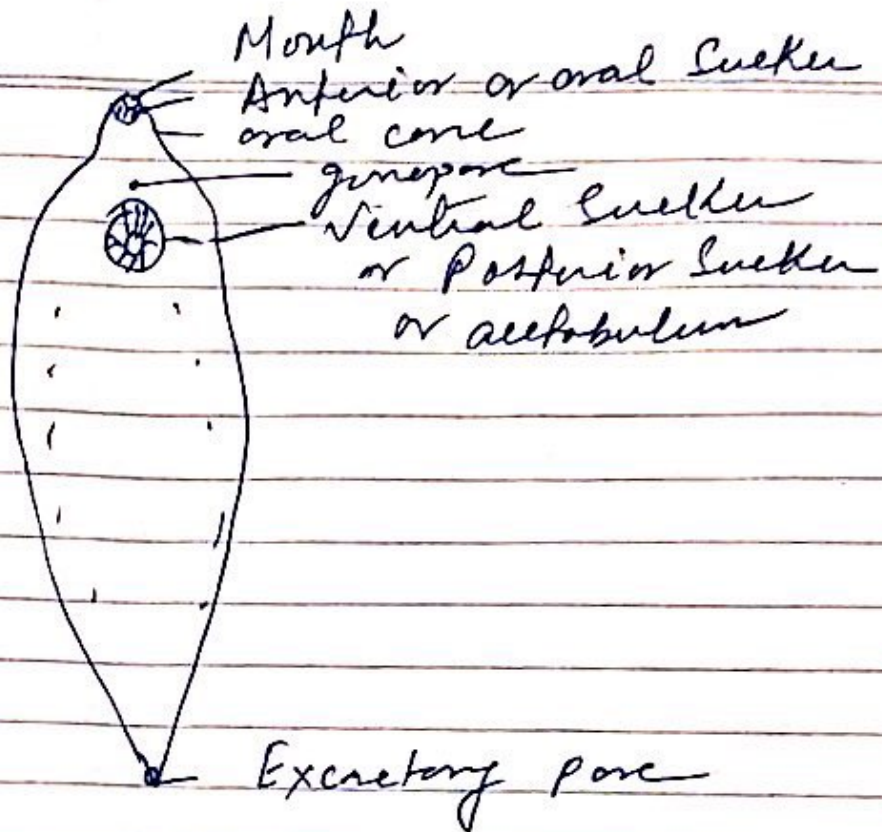 Mouth
Anterior or oral Sucker
oral cone
gonopore
Ventral Sucker
or Posterior Sucker
or acetabulum
Excretory pore